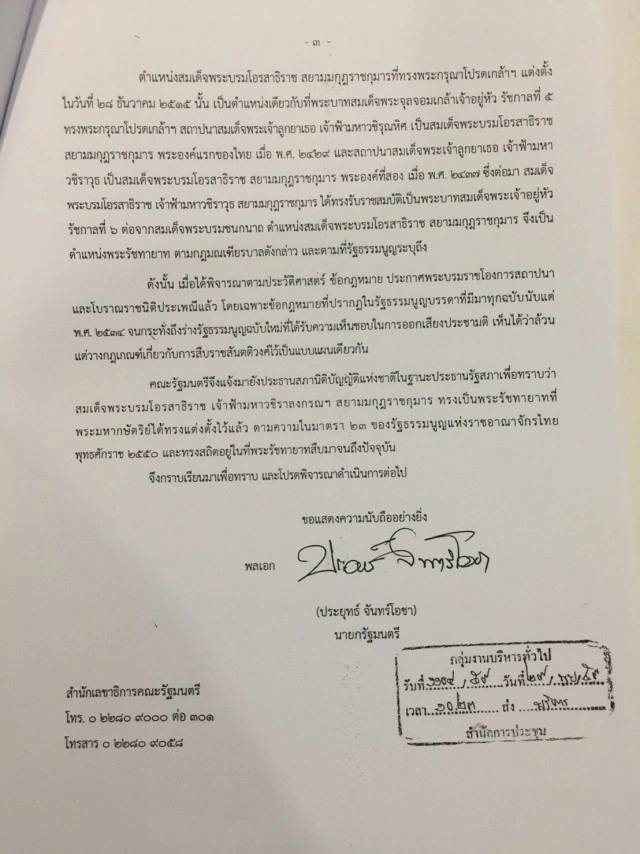 - ๓ -
ตำแหน่งสมเด็จพระบรมโอรสาธิราช สยามมกุฎราชกุมารที่ทรงพระกรุณาโปรดเกล้าฯ แต่งตั้ง
ในวันที่ ๒๘ ธันวาคม ๒๕๑๕ นั้น เป็นตำแหน่งเดียวกับที่พระบาทสมเด็จพระจุลจอมเกล้าเจ้าอยู่หัว รัชกาลที่ ๕
ทรงพระกรุณาโปรดเกล้าฯ สถาปนาสมเด็จพระเจ้าลูกยาเธอ เจ้าฟ้ามหาวชิรุณหิศ เป็นสมเด็จพระบรมโอรสาธิราช
สยามมกุฎราชกุมาร พระองค์แรกของไทย เมื่อ พ.ศ. ๒๔๒๙ และสถาปนาสมเด็จพระเจ้าลูกยาเธอ เจ้าฟ้ามหา
วชิราวุธ เป็นสมเด็จพระบรมโอรสาธิราช สยามมกุฎราชกุมาร พระองค์ที่สอง เมื่อ พ.ศ. ๒๔๓๗ ซึ่งต่อมา สมเด็จ
พระบรมโอรสาธิราช เจ้าฟ้ามหาวชิราวุธ สยามมกุฎราชกุมาร ได้ทรงรับราชสมบัติเป็นพระบาทสมเด็จพระเจ้าอยู่หัว
รัชกาลที่ ๖ ต่อจากสมเด็จพระบรมชนกนาถ ตำแหน่งสมเด็จพระบรมโอรสาธิราช สยามมกุฎราชกุมาร จึงเป็น
ตำแหน่งพระรัชทายาท ตามกฎมณเฑียรบาลดังกล่าว และตามที่รัฐธรรมนูญระบุถึง
ดังนั้น เมื่อได้พิจารณาตามประวัติศาสตร์ ข้อกฎหมาย ประกาศพระบรมราชโองการสถาปนา
และโบราณราชนิติประเพณีแล้ว โดยเฉพาะข้อกฎหมายที่ปรากฏในรัฐธรรมนูญบรรดาที่มีมาทุกฉบับนับแต่
พ.ศ. ๒๕๓๔ จนกระทั่งถึงร่างรัฐธรรมนูญฉบับใหม่ที่ได้รับความเห็นชอบในการออกเสียงประชามติ เห็นได้ว่าล้วน
แต่วางกฎเกณฑ์เกี่ยวกับการสืบราชสันตติวงศ์ไว้เป็นแบบแผนเดียวกัน
คณะรัฐมนตรีจึงแจ้งมายังประธานสภานิติบัญญัติแห่งชาติในฐานะประธานรัฐสภาเพื่อทราบว่า
สมเด็จพระบรมโอรสาธิราช เจ้าฟ้ามหาวชิราลงกรณฯ สยามมกุฎราชกุมาร ทรงเป็นพระรัชทายาทที่
พระมหากษัตริย์ได้ทรงแต่งตั้งไว้แล้ว ตามความในมาตรา ๒๓ ของรัฐธรรมนูญแห่งราชอาณาจักรไทย
พุทธศักราช ๒๕๕๐ และทรงสถิตอยู่ในที่พระรัชทายาทสืบมาจนถึงปัจจุบัน
จึงกราบเรียนมาเพื่อทราบ และโปรดพิจารณาดำเนินการต่อไป
ขอแสดงความนับถืออย่างยิ่ง
พลเอก
(ประยุทธ์ จันทร์โอชา)
นายกรัฐมนตรี
สำนักเลขาธิการคณะรัฐมนตรี
โทร. ๐ ๒๒๘๐ ๙๐๐๐ ต่อ ๓๐๑
โทรสาร ๐ ๒๒๘๐ ๙๐๕๘
กลุ่มงานบริหารทั่วไป
รับที่ /๕๙ วันที่ ๒๙/ /๕๙
เวลา ๑๐.๒๓ ส่ง บริหาร
สำนักการประชุม